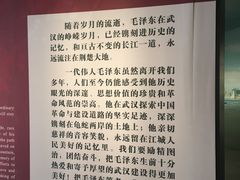 随着岁月的流逝，毛泽东在武
汉的峥嵘岁月，已经镌刻进历史的
记忆，和亘古不变的长江一道，永
远流注在荆楚大地。
一代伟人毛泽东虽然离开我们
多年，人们至今仍能感受到他历史
眼光的深邃、思想价值的珍贵和革
命风范的崇高。他在武汉探索中国
革命与建设道路的坚实足迹，深深
镌刻在龟蛇两岸的土地上；他亲切
慈祥的音容笑貌，永远留在江城人
民美好的记忆里。我们要励精图
治，团结奋斗，把毛泽东生前十分
热爱和寄予厚望的武汉建设得更加